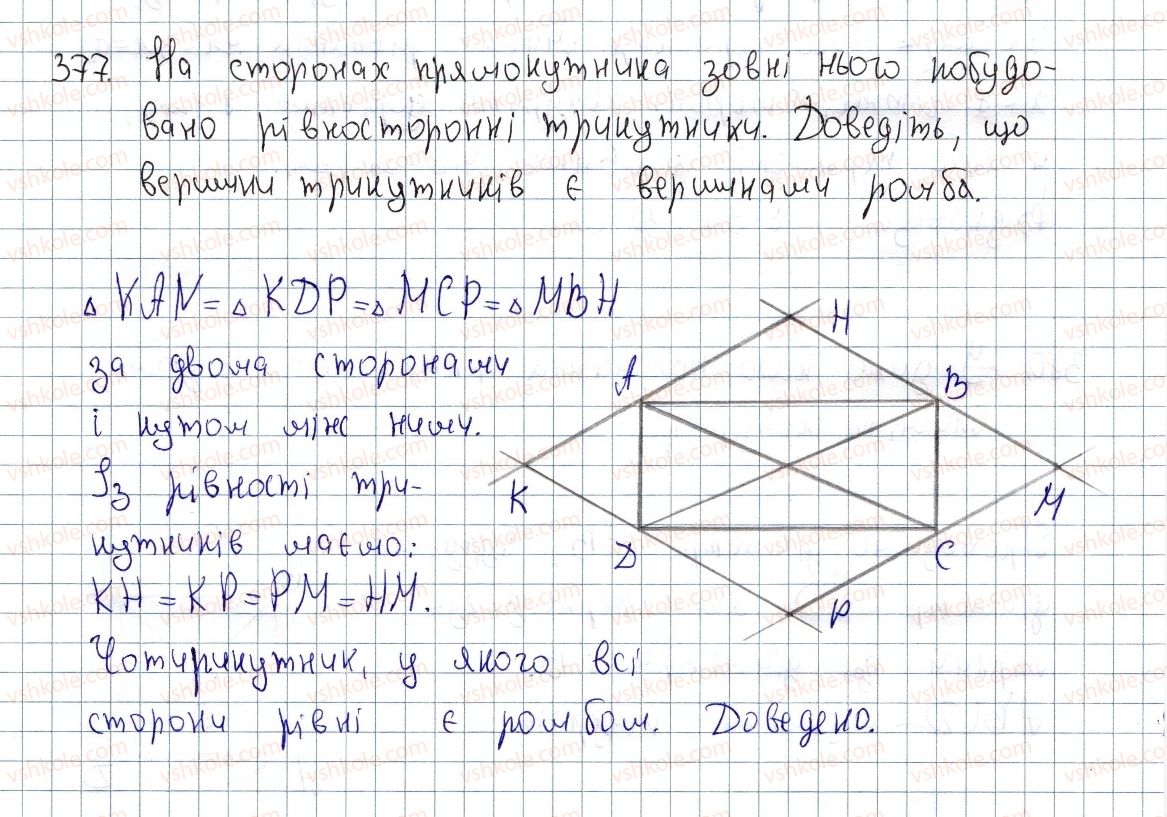 377. На сторонах прямокутника зовні нього побудо-
вано рівносторонні трикутники. Доведіть, що
вершини трикутників є вершинами ромба.
△KAN = △KDP = △MCP = △MBH
за двома сторонами
і кутом між ними.
Із рівності три-
кутників маємо:
KH = KP = PM = HM.
Чотирикутник, у якого всі
сторони рівні є ромбом. Доведено.
H
A
B
K
M
D
C
P